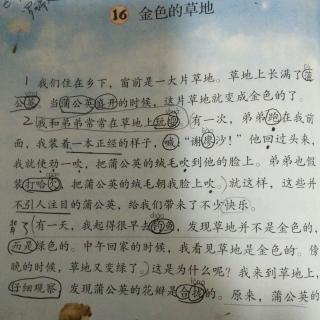 16 金色的草地
1 我们住在乡下，窗前是一大片草地。草地上长满了蒲
公英。当蒲公英盛开的时候，这片草地就变成金色的了。
2 我和弟弟常常在草地上玩耍。有一次，弟弟跑在我前
面，我装着一本正经的样子，喊：“谢廖沙！”他回过头来，
我就使劲一吹，把蒲公英的绒毛吹到他的脸上。弟弟也假
装打哈欠，把蒲公英的绒毛朝我脸上吹。就这样，这些并
不引人注目的蒲公英，给我们带来了不少快乐。
3 有一天，我起得很早去钓鱼，发现草地并不是金色的，
而是绿色的。中午回家的时候，我看见草地是金色的。傍
晚的时候，草地又变绿了。这是为什么呢？我来到草地上，
仔细观察，发现蒲公英的花瓣是合拢的。原来，蒲公英的